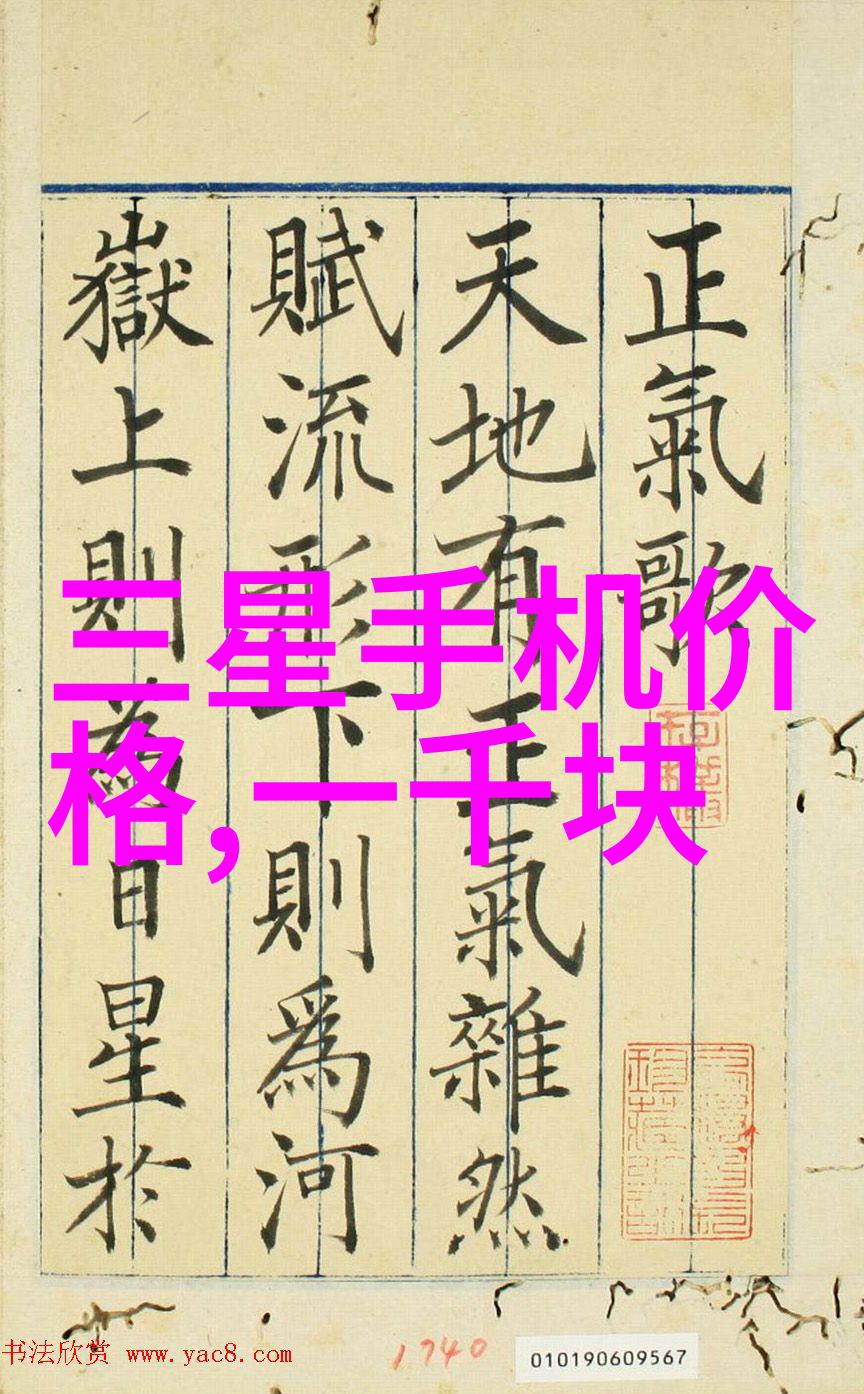 正氣歌
天地有正氣雜然
賦流形下則爲河
嶽上則為日星於
三星手机价
格,一千块
书法欣赏 www.yac8.com
1740
010190609567